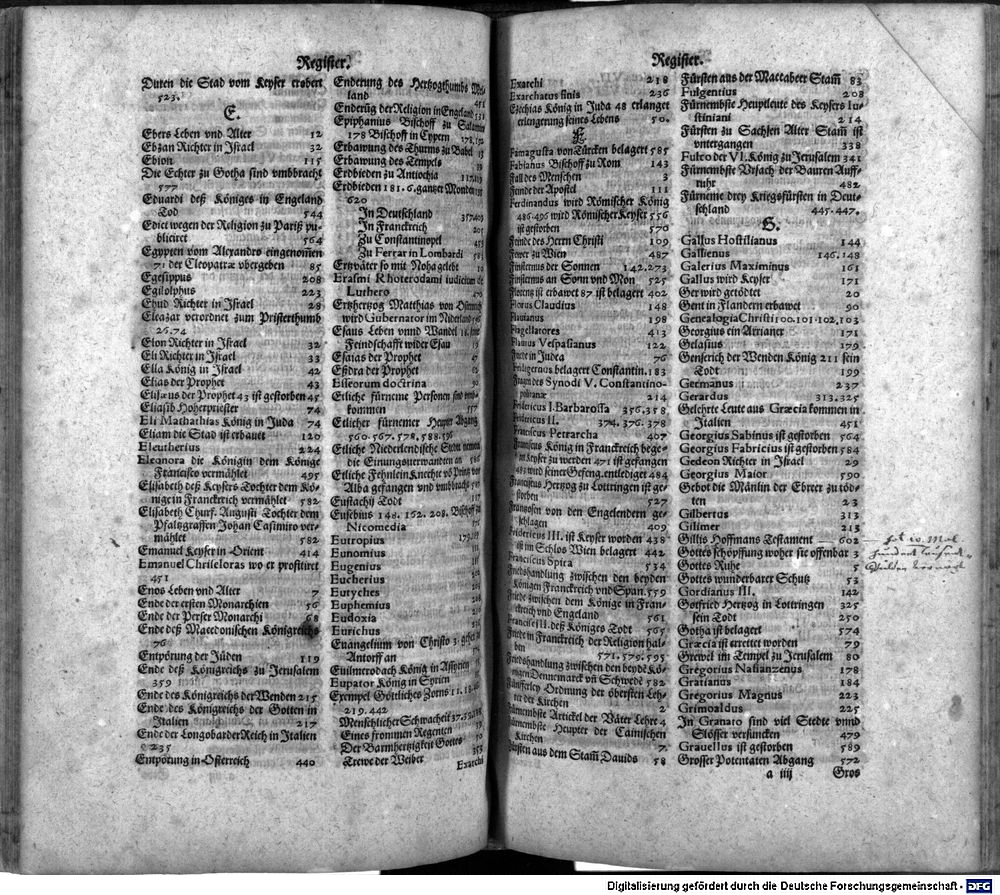 Register.
Duren die Stad vom Keyser erobert
523.
E.
Ebers Leben vnd Alter 12
Ebzan Richter in Israel 32
Ebion 115
Die Echter zu Gotha sind vmbbracht
577
Eduardi deß Königes in Engeland
Tod 544
Edict wegen der Religion zu Pariß pu-
bliciret 564
Egypten vom Alexandro eingenomen
71 der Cleopatræ vbergeben 85
Egesippus 208
Egilolphus 223
Ehud Richter in Israel 28
Eleazar verordnet zum Pristerthumb
26.74
Elon Richter in Israel 32
Eli Richter in Israel 33
Ella König in Israel 42
Elias der Prophet 43
Elisæus der Prophet 43 ist gestorben 45
Eliasib Hoherpriester 74
Eli Mathathias König in Juda 74
Eliam die Stad ist erbauet 120
Eleutherius 224
Eleonora die Königin dem Könige
Francisco vermählet 495
Elisabeth deß Keysers Tochter dem Kö-
nige in Franckreich vermählet 582
Elisabeth Churf. Augusti Tochter dem
Pfaltzgraffen Johan Casimiro ver-
mählet 582
Emanuel Keyser in Orient 414
Emanuel Chriseloras wo er profitiret
451
Enos Leben vnd Alter 7
Ende der ersten Monarchien 56
Ende der Perser Monarchi 68
Ende deß Macedonischen Königreichs
76
Entpörung der Jüden 119
Ende deß Königreichs zu Jerusalem
359
Ende des Königreichs der Wenden 215
Ende des Königreichs der Gotten in
Italien 217
Ende der Longobarder Reich in Italien
235
Entpörung in Osterreich 440
Enderung des Hertzogthumbs Mei-
land 451
Enderüg der Religion in Engeland 531
Epiphanius Bischoff zu Salamine
178 Bischoff in Cypern 178,192
Erbawung des Thurms zu Babel 13
Erbawung des Tempels
Erdbieden zu Antiochia
Erdbieden 181. 6. gantzer Monden
620
In Deutschland
In Franckreich
Zu Constantinopel
Zu Ferrar in Lombardi
Ertzväter so mit Noha gelebt 10
Erasmi Rhoterodami iudicium de
Luthero
Ertzhertzog Matthias von Osterreich
wird Gubernator im Niderland
Esaus Leben vnnd Wandel
Feindschafft wider Esau
Esaias der Prophet
Eßdra der Prophet
Esseorum doctrina
Etliche fürneme Personen sind vmb-
kommen 557
Etlicher fürnemer Heupter Abgang
560.567.578.588.596
Etliche Niderlendische Stete nemen
die Einungsuerwandten an
Etliche Fehnlein Knechte võ Printz von
Alba gefangen vnd vmbbracht
Eustachij Todt
Eusebius 148. 162. 208. Bischoff zu
Nicomedia
Eutropius
Eunomius
Eugenius
Eucherius
Eutyches
Euphemius
Eudoxia
Eurichus
Euangelium von Christo
Antorff an
Euilmerodach König in Assyrien
Eupator König in Syrien
Exempel Göttliches Zorns
219.442
Menschlicher Schwacheit
Eines frommen Regenten
Der Barmhertzigkeit Gottes
Trewe der Weiber
Exarchi
Register.
Exarchi 218
Exarchatus finis 236
Ezechias König in Juda 48 erlanget
erlengerung seines Lebens 50.
F.
Famagusta von Türcken belagert 585
Fabianus Bischoff zu Rom 143
Fall des Menschen 3
Feinde der Apostel 111
Ferdinandus wird Römischer König
486.496 wird Römischer Keyser 556
ist gestorben 570
Feinde des Herrn Christi 109
Fewer zu Wien 487
Finsternus der Sonnen 142.273
Finsternus an Sonn vnd Mon 525
Florentz ist erbawet 87 ist belagert 402
Florus Claudius 148
Flauianus 198
Flagellatores 413
Flauius Vespasianus 122
Friede in Judea 76
Feldigernus belagert Constantin. 183
Fragen des Synodi V. Constantino-
politanæ 214
Fridericus I. Barbarossa 356.358
Fridericus II. 374.376.378
Franciscus Petrarcha 407
Franciscus König in Franckreich bege-
ret Keyser zu werden 471 ist gefangen
483 wird seiner Gefeng. entlediget 484
Franciscus Hertzog zu Lottringen ist ge-
storben 527
Frantzosen von den Engelendern ge-
schlagen 409
Fridericus III. ist Keyser worden 438
ist im Schlos Wien belagert 442
Franciscus Spira 534
Friedshandlung zwischen den beyden
Königen Franckreich vnd Span. 559
Friede zwischen dem Könige in Fran-
ckreich vnd Engeland 561
Francisc. II. deß Königes Todt 565
Friede in Franckreich der Religion hal-
ben 571.579.595
Friedshandlung zwischen den beydē Kö-
nigen Dennemarck vñ Schwedē 582
Fünfferley Ordnung der öbersten Leh-
rer der Kirchen 2
Fürnembste Artickel der Väter Lehre 4
Fürnembste Heupter der Cainischen
Kirchen 7.
Fürsten aus dem Stam̃ Dauids 58
Fürsten aus der Maccabeer Stam̃ 83
Fulgentius 208
Fürnembste Heuptleute des Keysers Iu-
stiniani 214
Fürsten zu Sachsen Alter Stam̃ ist
vntergangen 338
Fulco der VI. König zu Jerusalem 341
Fürnembste Vrsach der Bauren Auff-
ruhr 482
Fürneme drey Kriegsfürsten in Deut-
schland 445.447.
G.
Gallus Hostilianus 144
Gallienus 146.148
Galerius Maximinus 161
Gallus wird Keyser 171
Ger wird getödtet 20
Gent in Flandern erbawet 90
Genealogia Christi 100.101.102.103
Georgius ein Arrianer 171
Gelasius 179
Genserich der Wenden König 211 sein
Todt 199
Germanus 237
Gerardus 313.325
Gelehrte Leute aus Græcia kommen in
Italien 451
Georgius Sabinus ist gestorben 564
Georgius Fabricius ist gestorben 584
Gedeon Richter in Israel 29
Georgius Maior 590
Gebot die Mänlin der Ebreer zu töd-
ten 23
Gilbertus 313
Gilimer 213
Gillis Hoffmans Testament 602
Gottes schöpffung woher sie offenbar 3
Gottes Ruhe 5
Gottes wunderbarer Schutz 53
Gordianus III. 142
Gotfried Hertzog in Lottringen 325
sein Tod 250
Gotha ist belagert 574
Græcia ist errettet worden 79
Grewel im Tempel zu Jerusalem 80
Gregorius Nasianzenus 178
Gratianus 184
Gregorius Magnus 223
Grimoaldus 225
In Granato sind viel Stedte vnnd
Slösser versuncken 479
Grauellus ist gestorben 589
Grosser Potentaten Abgang 572
a iiij Gros
Digitalisierung gefördert durch die Deutsche Forschungsgemeinschaft - DFG